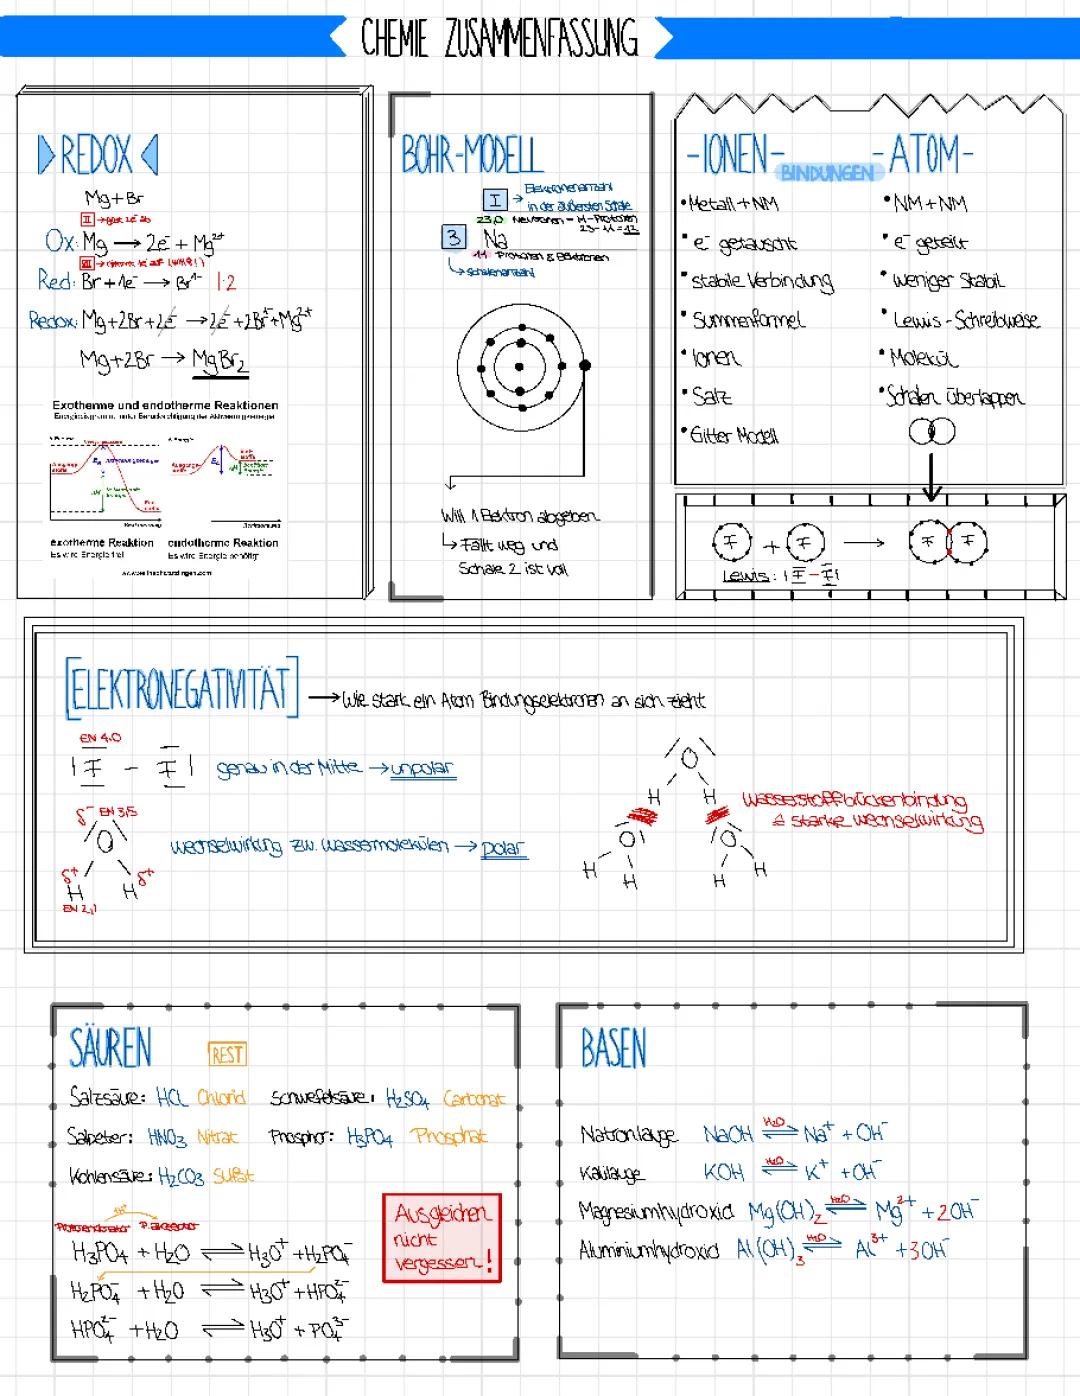 CHEMIE ZUSAMMENFASSUNG
REDOX
Mg + Br
II → gibt 2e⁻ ab
Ox: Mg → 2e⁻ + Mg²⁺
VII → nimmt 1e⁻ auf
Red: Br + 1e⁻ → Br¹⁻ |·2
Redox: Mg + 2Br + 2e⁻ → 2e⁻ + 2Br¹⁻ + Mg²⁺
Mg + 2Br → MgBr₂
Exotherme und endotherme Reaktionen
Energiediagramm unter Berücksichtigung der Aktivierungsenergie
exotherme Reaktion
Es wird Energie frei
endotherme Reaktion
Es wird Energie benötigt
BOHR-MODELL
I → Elektronenanzahl
in der äußersten Schale
23,0 Neutronen = M - Protonen
23 - 11 = 12
3 Na
11 Protonen & Elektronen
↳ Schalenanzahl
Will 1 Elektron abgeben
↳ Fällt weg und
Schale 2 ist voll
-IONEN- BINDUNGEN -ATOM-
• Metall + NM
• e⁻ getauscht
• stabile Verbindung
• Summenformel
• Ionen
• Salz
• Gitter Modell
• NM + NM
• e⁻ geteilt
• weniger Stabil
• Lewis-Schreibweise
• Molekül
• Schalen überlappen
F + F → F F
Lewis: |F - F|
[ELEKTRONEGATIVITÄT] → Wie stark ein Atom Bindungselektronen an sich zieht
EN 4.0
|F - F| genau in der Mitte → unpolar
δ⁻ EN 3,5
O
δ⁺ δ⁺
H H
EN 2,1
Wechselwirkung zw. Wassermolekülen → polar
O
H H
O O
H H H H
Wasserstoffbrückenbindung
≙ starke Wechselwirkung
SÄUREN REST
Salzsäure: HCL Chlorid Schwefelsäure: H₂SO₄ Carbonat
Salpeter: HNO₃ Nitrat Phosphor: H₃PO₄ Phosphat
Kohlensäure: H₂CO₃ Sulfat
Protonendonator P. akzeptor
H₃PO₄ + H₂O ⇌ H₃O⁺ + H₂PO₄⁻
H₂PO₄⁻ + H₂O ⇌ H₃O⁺ + HPO₄²⁻
HPO₄²⁻ + H₂O ⇌ H₃O⁺ + PO₄³⁻
Ausgleichen
nicht
vergessen!
BASEN
Natronlauge NaOH ⇌ H₂O Na⁺ + OH⁻
Kalilauge KOH ⇌ H₂O K⁺ + OH⁻
Magnesiumhydroxid Mg(OH)₂ ⇌ H₂O Mg²⁺ + 2OH⁻
Aluminiumhydroxid Al(OH)₃ ⇌ H₂O Al³⁺ + 3OH⁻